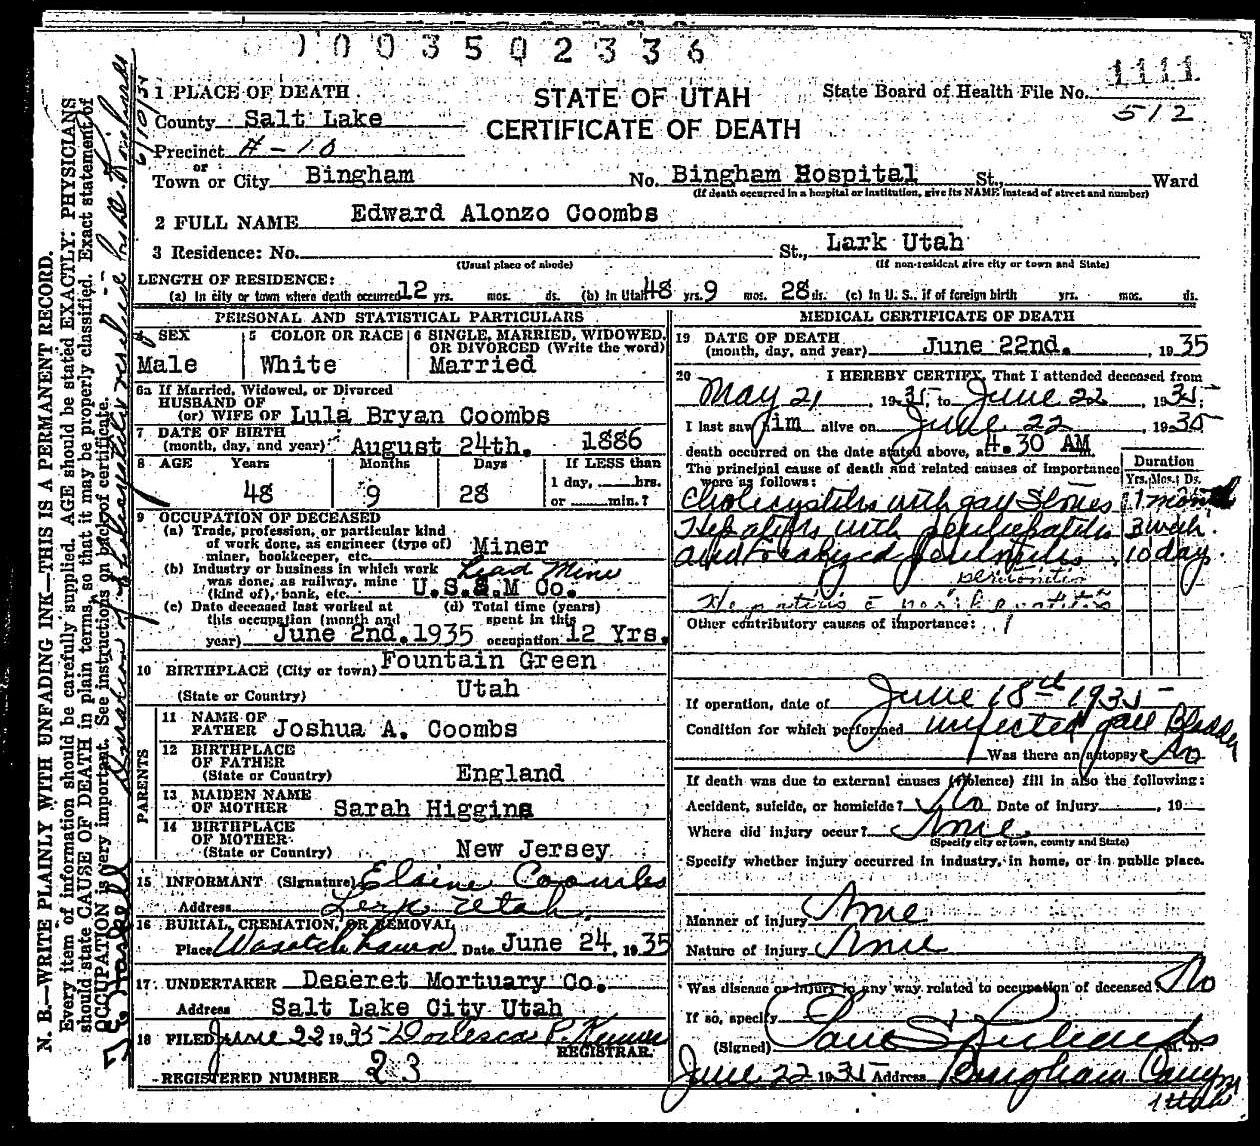 0003502336
1111
1 PLACE OF DEATH
STATE OF UTAH
State Board of Health File No.
512
County Salt Lake
CERTIFICATE OF DEATH
Precinct H-10
or
Town or City Bingham No. Bingham Hospital St., Ward
(If death occurred in a hospital or institution, give its NAME instead of street and number)
2 FULL NAME Edward Alonzo Coombs
3 Residence: No. St., Lark Utah
(Usual place of abode) (If non-resident give city or town and State)
LENGTH OF RESIDENCE:
(a) In city or town where death occurred 12 yrs. mos. ds. (b) In Utah 48 yrs. 9 mos. 28 ds. (c) In U. S., if of foreign birth yrs. mos. ds.
PERSONAL AND STATISTICAL PARTICULARS
4 SEX
Male
5 COLOR OR RACE
White
6 SINGLE, MARRIED, WIDOWED, OR DIVORCED (Write the word)
Married
6a If Married, Widowed, or Divorced
HUSBAND OF
(or) WIFE OF Lula Bryan Coombs
7 DATE OF BIRTH
(month, day, and year) August 24th. 1886
8 AGE Years Months Days If LESS than
48 9 28 1 day, hrs.
or min.?
9 OCCUPATION OF DECEASED
(a) Trade, profession, or particular kind
of work done, as engineer (type of)
miner, bookkeeper, etc. Miner
(b) Industry or business in which work
was done, as railway, mine Lead Mine
(kind of), bank, etc. U.S.S.M Co.
(c) Date deceased last worked at
this occupation (month and
year) June 2nd. 1935
(d) Total time (years)
spent in this
occupation 12 Yrs.
10 BIRTHPLACE (City or town) Fountain Green
(State or Country) Utah
PARENTS
11 NAME OF
FATHER Joshua A. Coombs
12 BIRTHPLACE
OF FATHER
(State or Country) England
13 MAIDEN NAME
OF MOTHER Sarah Higgins
14 BIRTHPLACE
OF MOTHER
(State or Country) New Jersey
15 INFORMANT (Signature) Elaine Coombs
Address Lark Utah
16 BURIAL, CREMATION, OR REMOVAL
Place Wasatch Lawn Date June 24, 1935
17 UNDERTAKER Deseret Mortuary Co.
Address Salt Lake City Utah
18 FILED June 22 1935
REGISTRAR.
REGISTERED NUMBER 23
MEDICAL CERTIFICATE OF DEATH
19 DATE OF DEATH
(month, day, and year) June 22nd. , 1935
20 I HEREBY CERTIFY, That I attended deceased from
May 21 1935, to June 22 1935;
I last saw him alive on June 22 1935
death occurred on the date stated above, at 4.30 AM
The principal cause of death and related causes of importance
were as follows:
Duration
Yrs. Mos. Ds.
Cholecystitis with gall stones 1 month
Hepatitis with perihepatitis 3 week.
and Paralyzed 10 day.
peritonitis
Other contributory causes of importance:
If operation, date of June 18th 1935
Condition for which performed infected gall Bladder
Was there an autopsy? No
If death was due to external causes (violence) fill in also the following:
Accident, suicide, or homicide? No Date of injury , 19
Where did injury occur? None
(Specify city or town, county and State)
Specify whether injury occurred in industry, in home, or in public place.
Manner of injury None
Nature of injury None
Was disease or injury in any way related to occupation of deceased No
If so, specify
(Signed) Paul S Richards M. D.
June 22 1935 Address Bingham Canyon
Utah
N. B.—WRITE PLAINLY WITH UNFADING INK—THIS IS A PERMANENT RECORD.
Every item of information should be carefully supplied. AGE should be stated EXACTLY. PHYSICIANS
should state CAUSE OF DEATH in plain terms, so that it may be properly classified. Exact statement of
OCCUPATION is very important. See instructions on back of certificate.